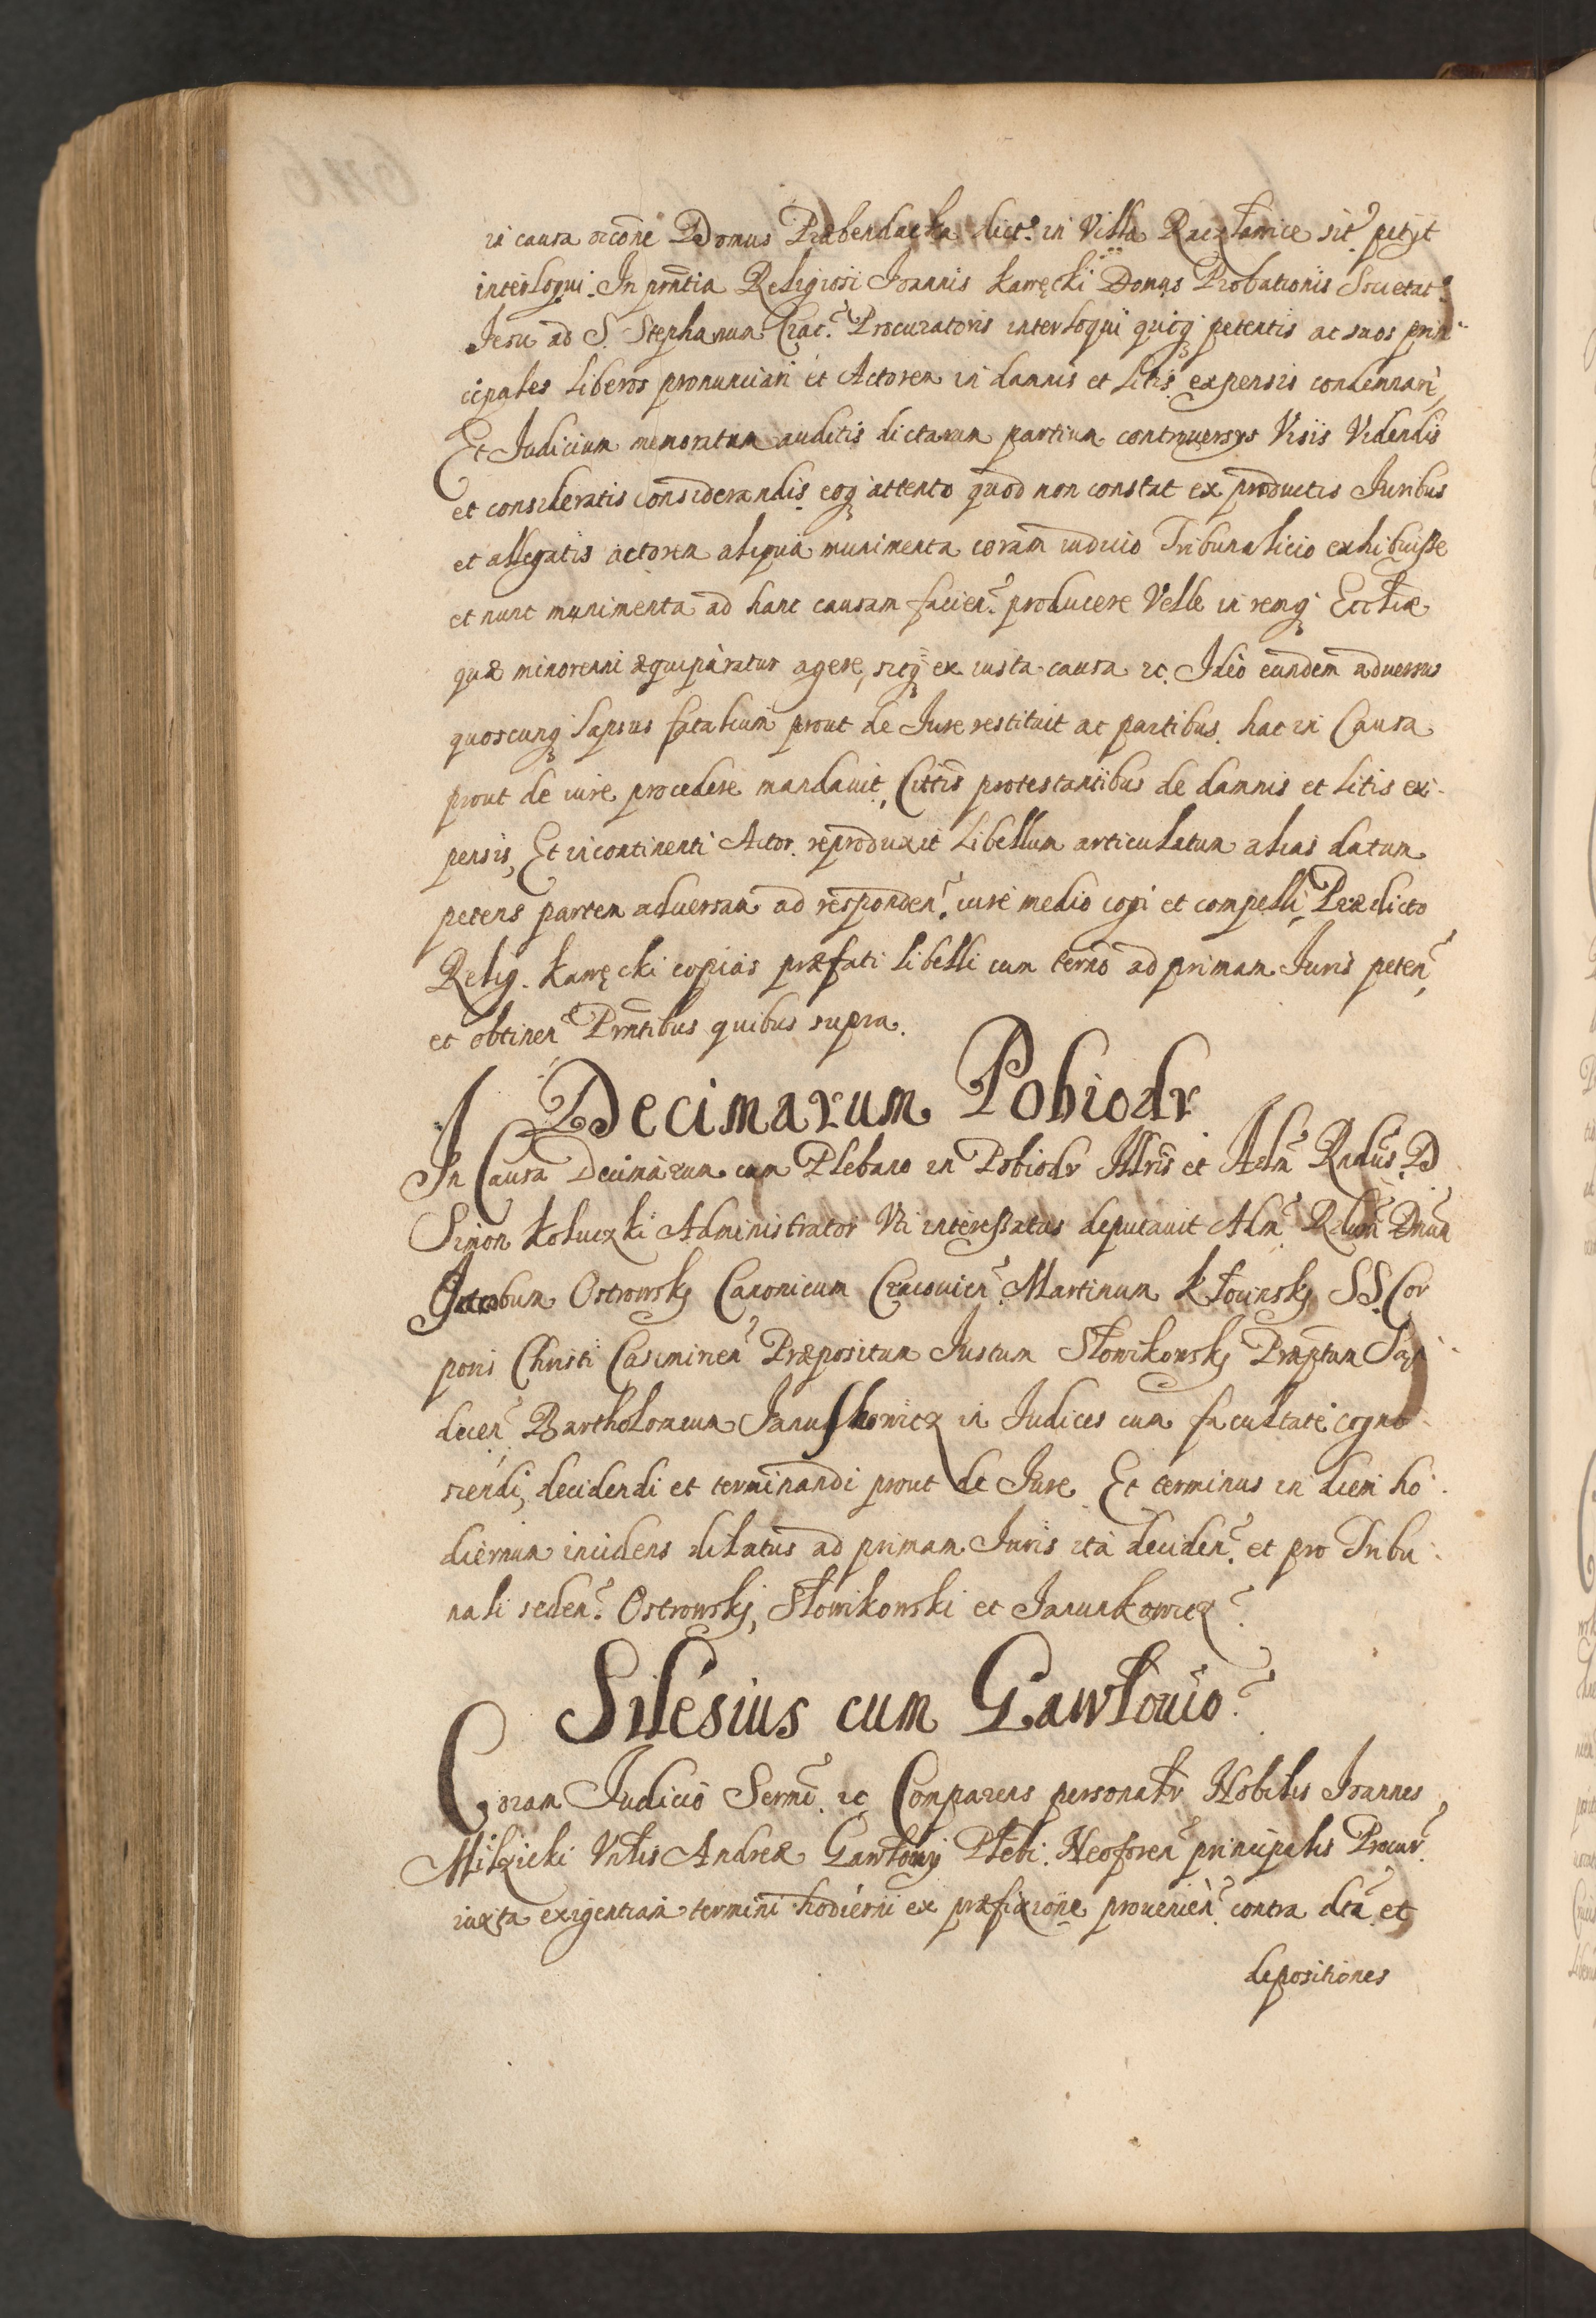 in causa rõne Domus Præbendacka dict. in Villa Raczławice sit. petijt
interloqui. In pñtia Religiosi Joannis Karręcki Domus Probationis Societat.
Jesu ad S. Stephanum Crac. Procuratoris interloqui quoq petentis ac suos prin
cipales liberos pronunciari et Actorem in damnis et litis expensis condemnari,
Et Judicium memoratum auditis dictarum partium controuersijs Visis Videndis
et consideratis considerandis eoq attento quod non constat ex productis Juribus
et allegatis actorem aliqua munimenta coram iudicio Tribunalicio exhibuisse
et nunc munimenta ad hanc causam facien. producere Velle in remq Ecctiæ
quæ minorenni æquiparatur agere, sicq ex iusta causa &c. Ideo eundem aduersus
quoscunq lapsus fatalium prout de Jure restituit ac partibus hac in Causa
prout de iure procedere mandauit, Cittis protestantibus de damnis et litis ex
pensis, Et incontinenti Actor reproduxit Libellum articulatum alias datum
petens partem aduersam ad responden. iure medio cogi et compelli, Prædicto
Relig. Karręcki copias præfati libelli cum termo ad primam Juris peten,
et obtinen Prñtibus quibus supra.
Decimarum Pobiodr
In Causa Decimarum cum Plebano in Pobiodr Illris et Adm Rndus D
Simon Koluczki Administrator Uti interessatus deputauit Adm Rdum Dnum
Jacobum Ostrowskj Canonicum Cracouien. Martinum Kłoinskj SS. Cor
poris Christi Casimirien Præpositum Justum Słowikowskj Præptum San
decen Bartholomeum Januszkowicz in Judices cum facultate cogno
scendi, decidendi et terminandi prout de Jure Et terminus in diem ho
diernum incidens dilatus ad primam Juris ita deciden. et pro Tribu
nali seden. Ostrowskj, Słowikowski et Janunkowicz
Silesius cum Gawłouio
Coram Judicio Sermi &c Comparens personalr Nobilis Joannes
Milzicki Vnłis Andreæ Gawłouij Plebi. Neoforen principalis Procur
iuxta exigentiam termini hodierni ex præfixione prouenien. contra dta et
depositiones